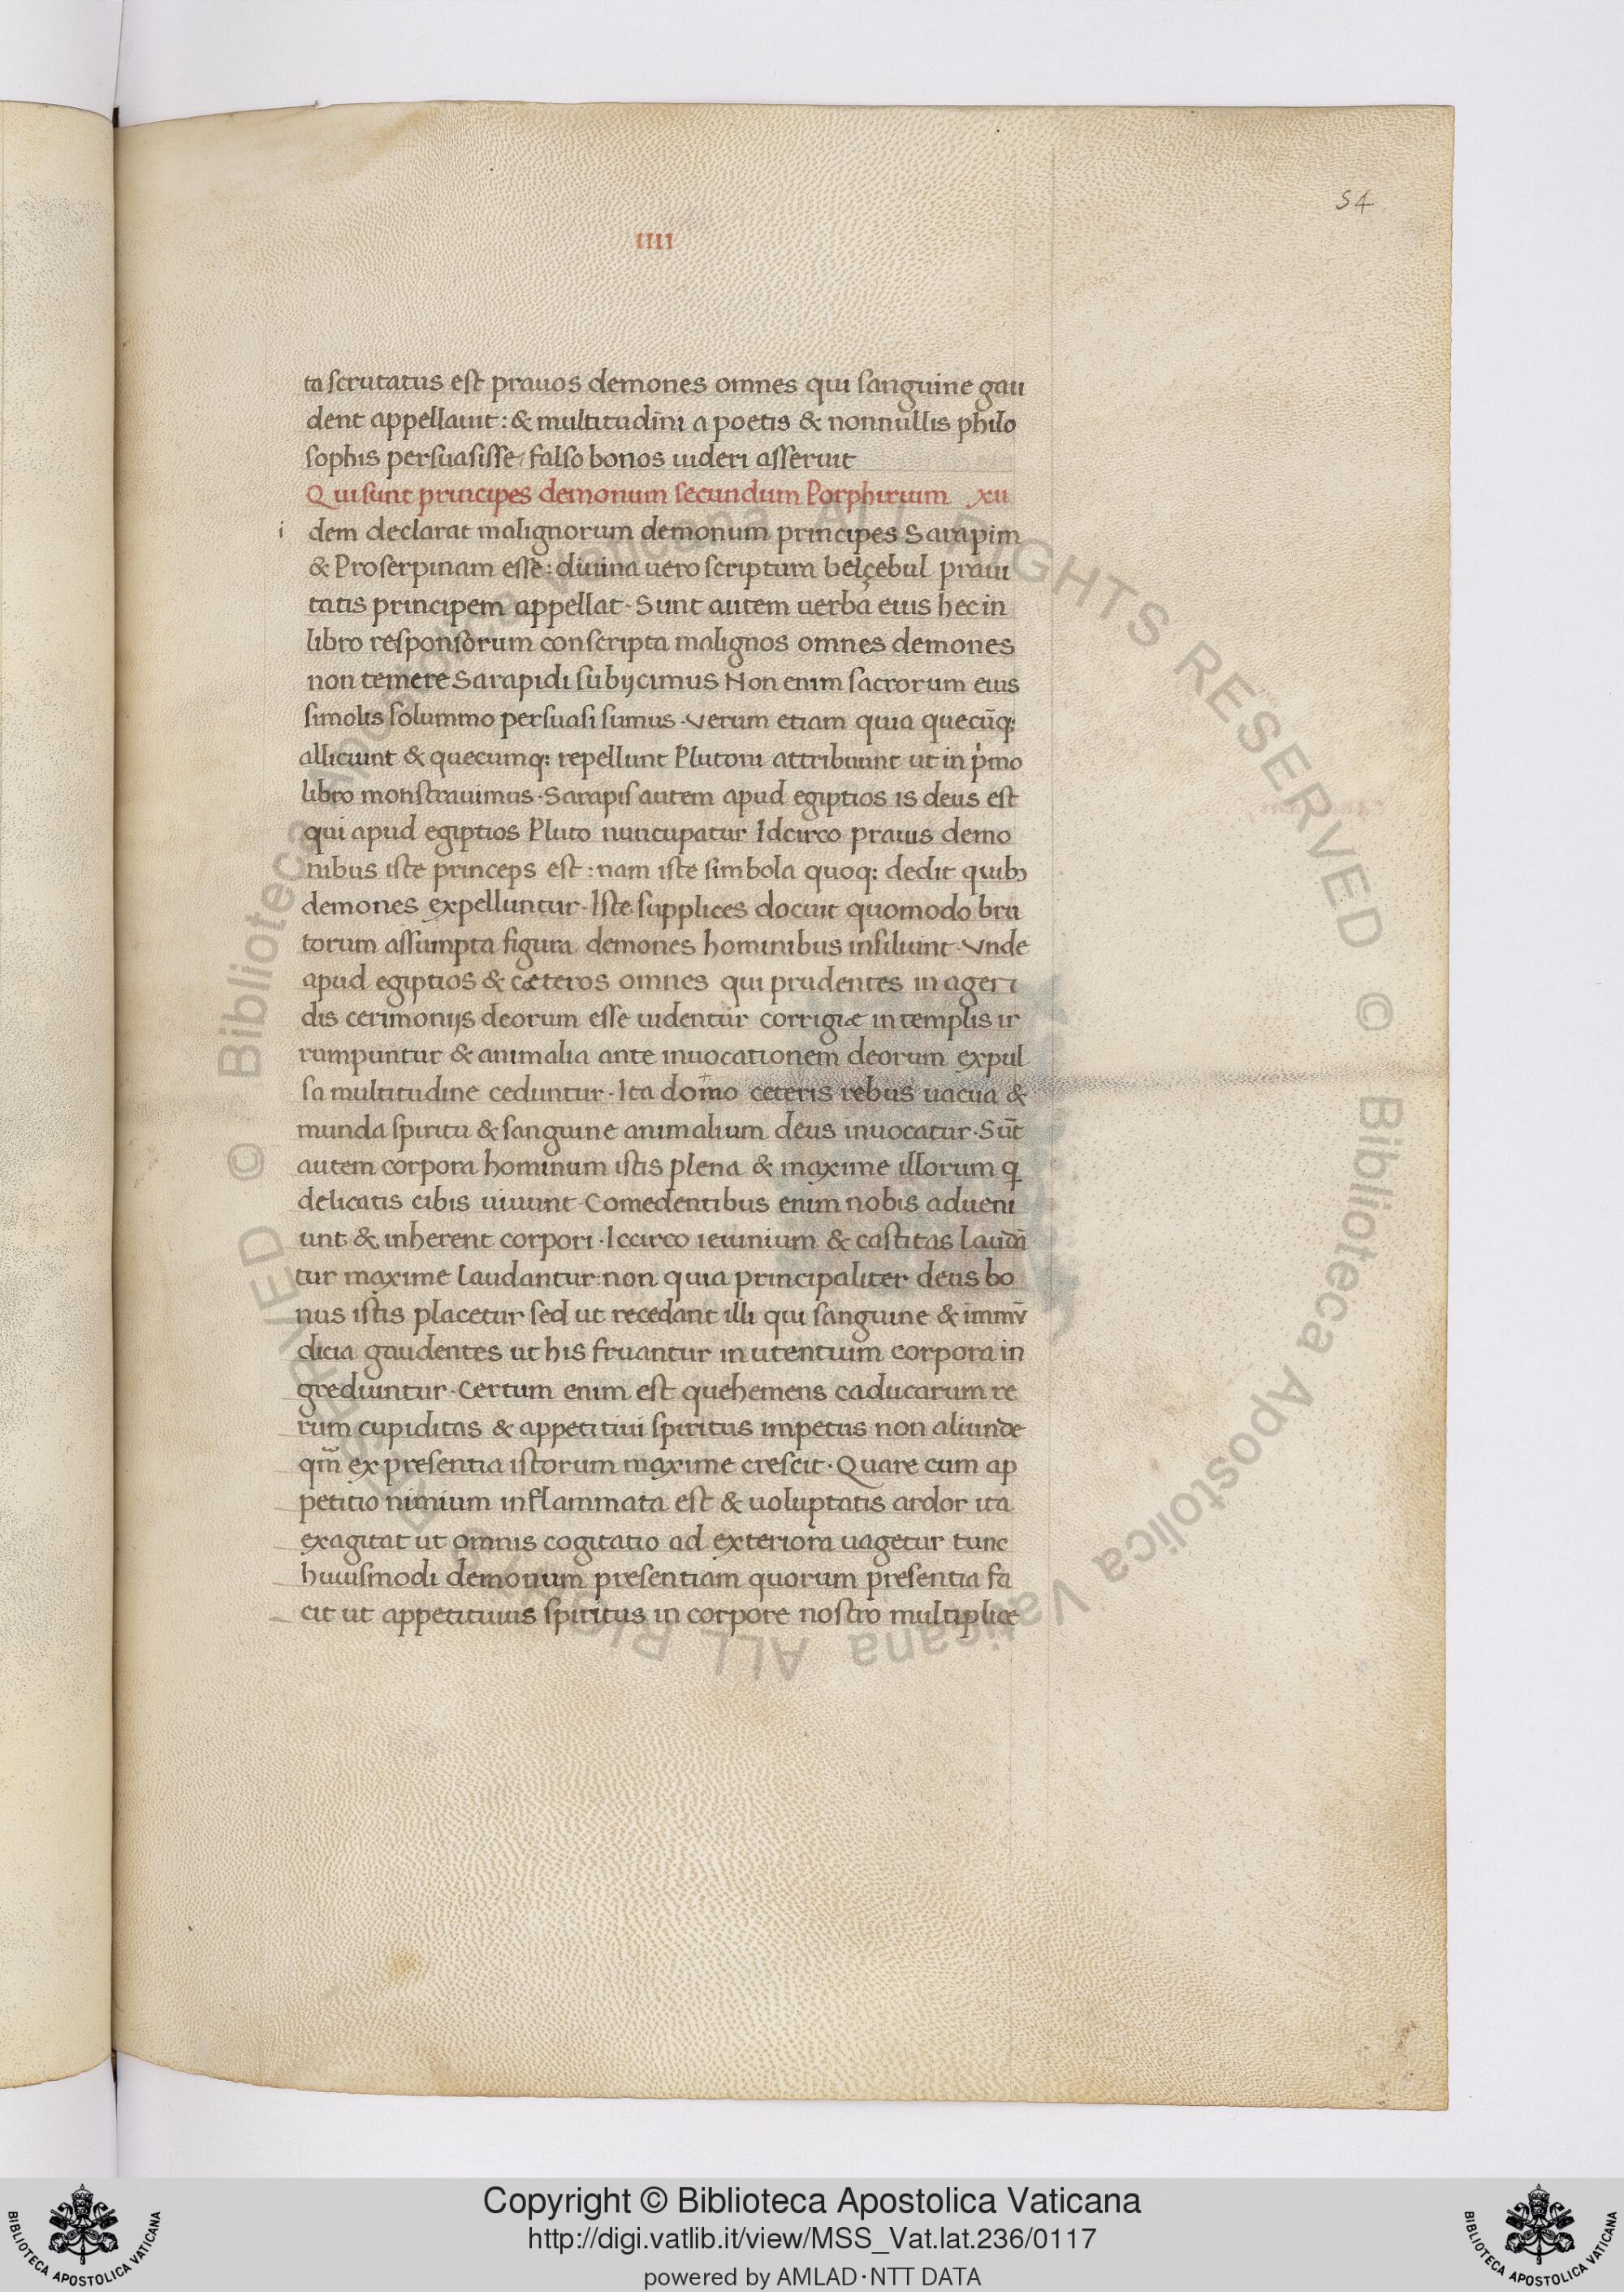 54
IIII
ta scrutatus est prauos demones omnes qui sanguine gau
dent appellauit: & multitudini a poetis & nonnullis philo
sophis persuasisse, falso bonos uideri asseruit
Qui sunt principes demonum secundum Porphirium xii
i dem declarat malignorum demonum principes Sarapim
& Proserpinam esse: diuina uero scriptura belçebul praui
tatis principem appellat. Sunt autem uerba eius hec in
libro responsorum conscripta malignos omnes demones
non temere Sarapidi subijcimus Non enim sacrorum eius
simolis solummo persuasi sumus. Verum etiam quia quecūq;
alliciunt & quecumq; repellunt Plutoni attribuunt ut in pͥmo
libro monstrauimus. Sarapis autem apud egiptios is deus est
qui apud egiptios Pluto nuncupatur Idcirco prauis demo
nibus iste princeps est: nam iste simbola quoq; dedit quibꝫ
demones expelluntur. Iste supplices docuit quomodo bru
torum assumpta figura demones hominibus insiluint. Vnde
apud egiptios & cæteros omnes qui prudentes in ageri
dis cerimonijs deorum esse uidentur corrigiæ in templis ir
rumpuntur & animalia ante inuocationem deorum expul
sa multitudine ceduntur. Ita domo ceteris rebus uacua &
munda spiritu & sanguine animalium deus inuocatur. Sūt
autem corpora hominum istis plena & maxime illorum q
delicatis cibis uiuunt. Comedentibus enim nobis adueni
unt & inherent corpori. Iccirco ieiunium & castitas laudā
tur maxime laudantur: non quia principaliter deus bo
nus istis placetur sed ut recedant illi qui sanguine & immū
dicia gaudentes ut his fruantur in utentium corpora in
grediuntur. Certum enim est quehemens caducarum re
rum cupiditas & appetitiui spiritus impetus non aliunde
qm̄ ex presentia istorum maxime crescit. Quare cum ap
petitio nimium inflammata est & uoluptatis ardor ita
exagitat ut omnis cogitatio ad exteriora uagetur tunc
huiusmodi demonum presentiam quorum presentia fa
cit ut appetituus spiritus in corpore nostro multiplice
Copyright © Biblioteca Apostolica Vaticana
http://digi.vatlib.it/view/MSS_Vat.lat.236/0117
powered by AMLAD·NTT DATA
BIBLIOTECA APOSTOLICA VATICANA
BIBLIOTECA APOSTOLICA VATICANA
© Biblioteca Apostolica Vaticana ALL RIGHTS RESERVED © Biblioteca Apostolica Vaticana ALL RIGHTS RESERVED